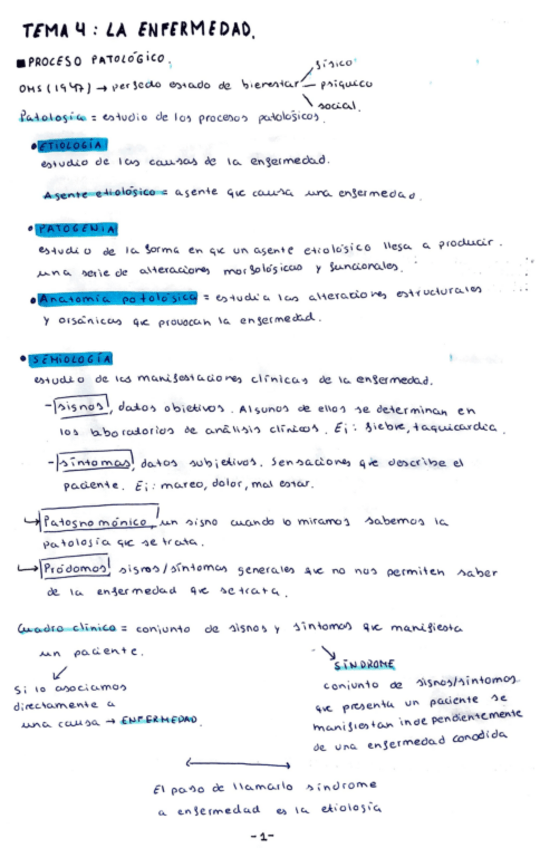 TEMA 4: LA ENFERMEDAD.
■PROCESO PATOLÓGICO.
OMS (1947) → perfecto estado de bienestar físico
psíquico
social.
Patología = estudio de los procesos patológicos.
•ETIOLOGÍA
estudio de las causas de la enfermedad.
Agente etiológico = agente que causa una enfermedad.
•PATOGENIA
estudio de la forma en que un agente etiológico llega a producir
una serie de alteraciones morfológicas y funcionales.
•Anatomía patológica = estudia las alteraciones estructurales
y orgánicas que provocan la enfermedad.
•SEMIOLOGÍA
estudio de las manifestaciones clínicas de la enfermedad.
-signos, datos objetivos. Algunos de ellos se determinan en
los laboratorios de análisis clínicos. Ej: fiebre, taquicardia.
-síntomas, datos subjetivos. Sensaciones que describe el
paciente. Ej: mareo, dolor, mal estar.
↳Patognomónico, un signo cuando lo miramos sabemos la
patología que se trata.
↳Pródomos, signos/síntomas generales que no nos permiten saber
de la enfermedad que se trata.
Cuadro clínico = conjunto de signos y síntomas que manifiesta
un paciente.
Si lo asociamos
directamente a
una causa → ENFERMEDAD.
SÍNDROME
conjunto de signos/síntomas
que presenta un paciente se
manifiestan independientemente
de una enfermedad conodida
El paso de llamarlo síndrome
a enfermedad es la etiología
-1-